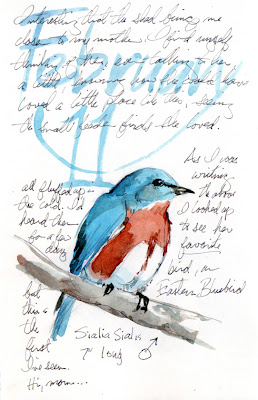 Interesting that the shed brings me
closer to my mother. I find myself
thinking of her, even talking to her
a little, knowing how she would have
loved a little place like this, seeing
the small seaside finds she loved.
February
11
As I was
writing
the above
I looked up
to see her
favorite
bird, an
Eastern Bluebird
all fluffed up in
the cold. I'd
heard them
for a few
days
but
this is
the
first
I've seen.
Hi, mom...
Sialia Sialis ♂
7" long